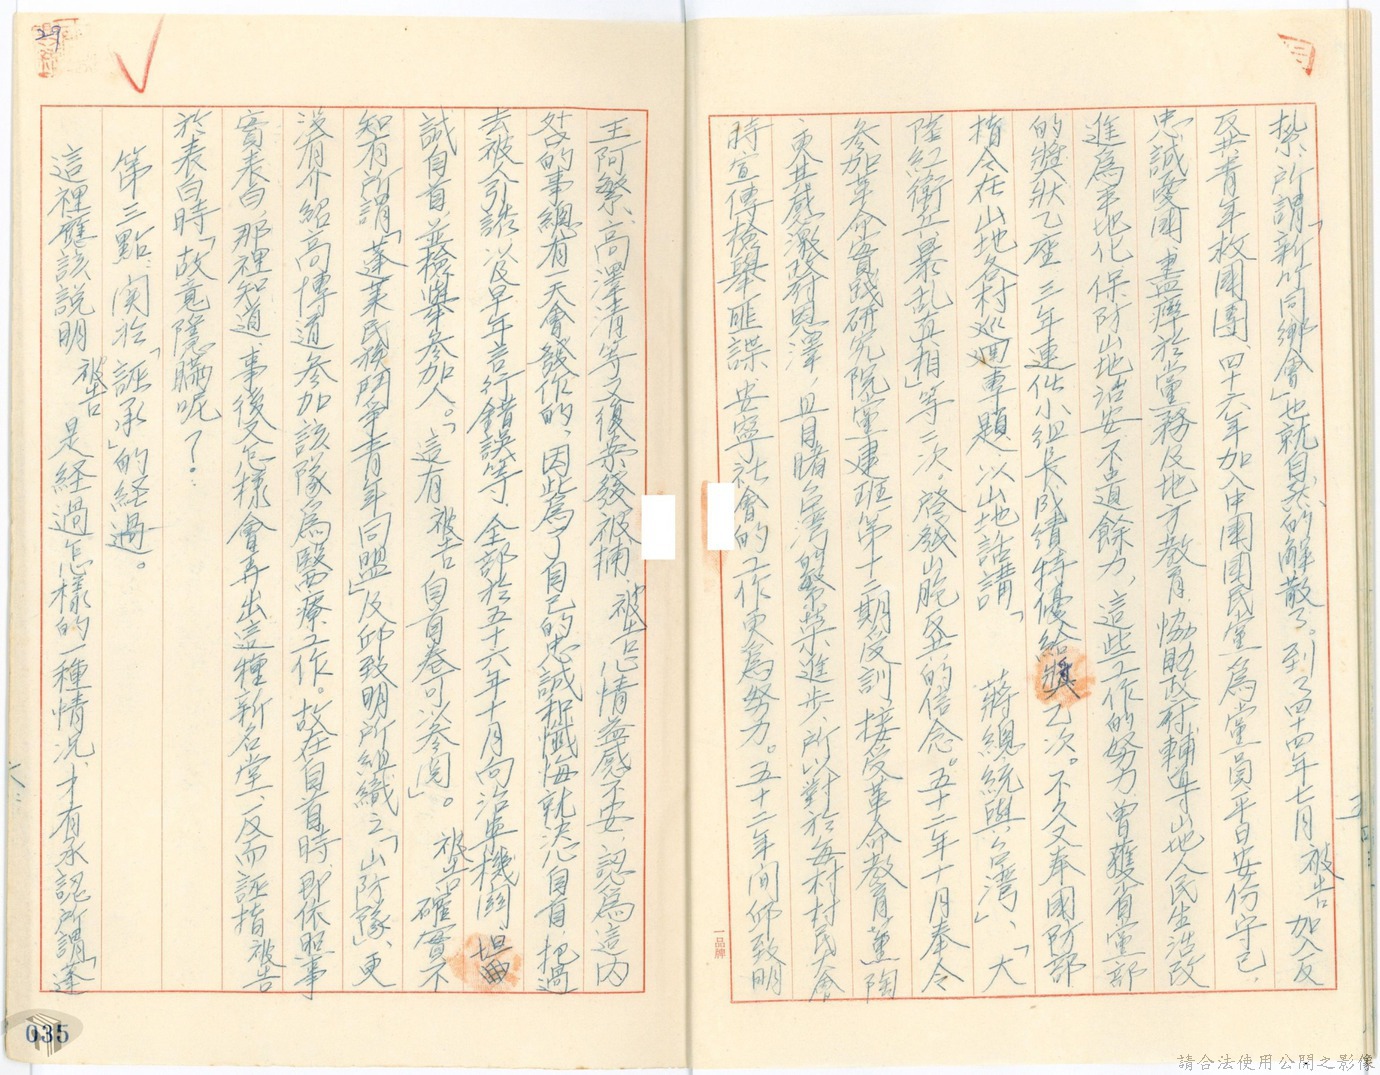 勢、所謂「新竹同鄉會」也就自然的解散了。到了四十四年七月被告加入反
反共青年救國團團、四十六年加入中國國民黨為黨員、平日安份守己、
忠誠愛國、盡瘁於黨務及地方教育、協助政府輔導山地人民生活改
進為事地化、保防山地治安、不遺餘力、這些工作的努力、曾獲省黨部
的獎狀乙座、三年連任小組長成績特優給獎乙次。不久又奉國防部
指令在山地各村巡迴專題、以山地話講「蔣總統與台灣」、「大
陸紅衛兵暴乱真相」等二次、啓發山胞反共的信念。五十二年十月奉令
參加革命實踐研究院黨建班第十二期受訓、接受革命教育薰陶
更其感激政府恩澤，且目睹台灣的繁榮進步、所以對於每村村民大會
時宣傳檢舉匪諜、安寧社會的工作更為努力。五十二年間邱致明
一品牌
王阿繁、高澤清等又復案發被捕、被告心情益感不安、認為這內
疚的事總有一天會發作的、因此為了自己的忠誠和懺悔就決心自首、把過
去被人引誘以及早年言行錯誤等、全部於五十六年十月向治安機關坦
誠自首、並檢舉參加人。「這有被告自首卷可以參閱」。被告確實不
知有所謂「蓬萊民族鬥爭青年同盟」及邱致明所組織之「山防隊」、更
沒有介紹高博道參加該隊為醫療工作。故在自首時、即依照事
實表白、那裡知道、事後又怎樣會弄出這種新名堂、反而誣指被告
於表白時「故竟隱瞞呢？
第三點、関於「誣承」的経過。
這裡應該說明被告是経過怎樣的一種情况、才有承認所謂「蓬
29
035
請合法使用公開之影像